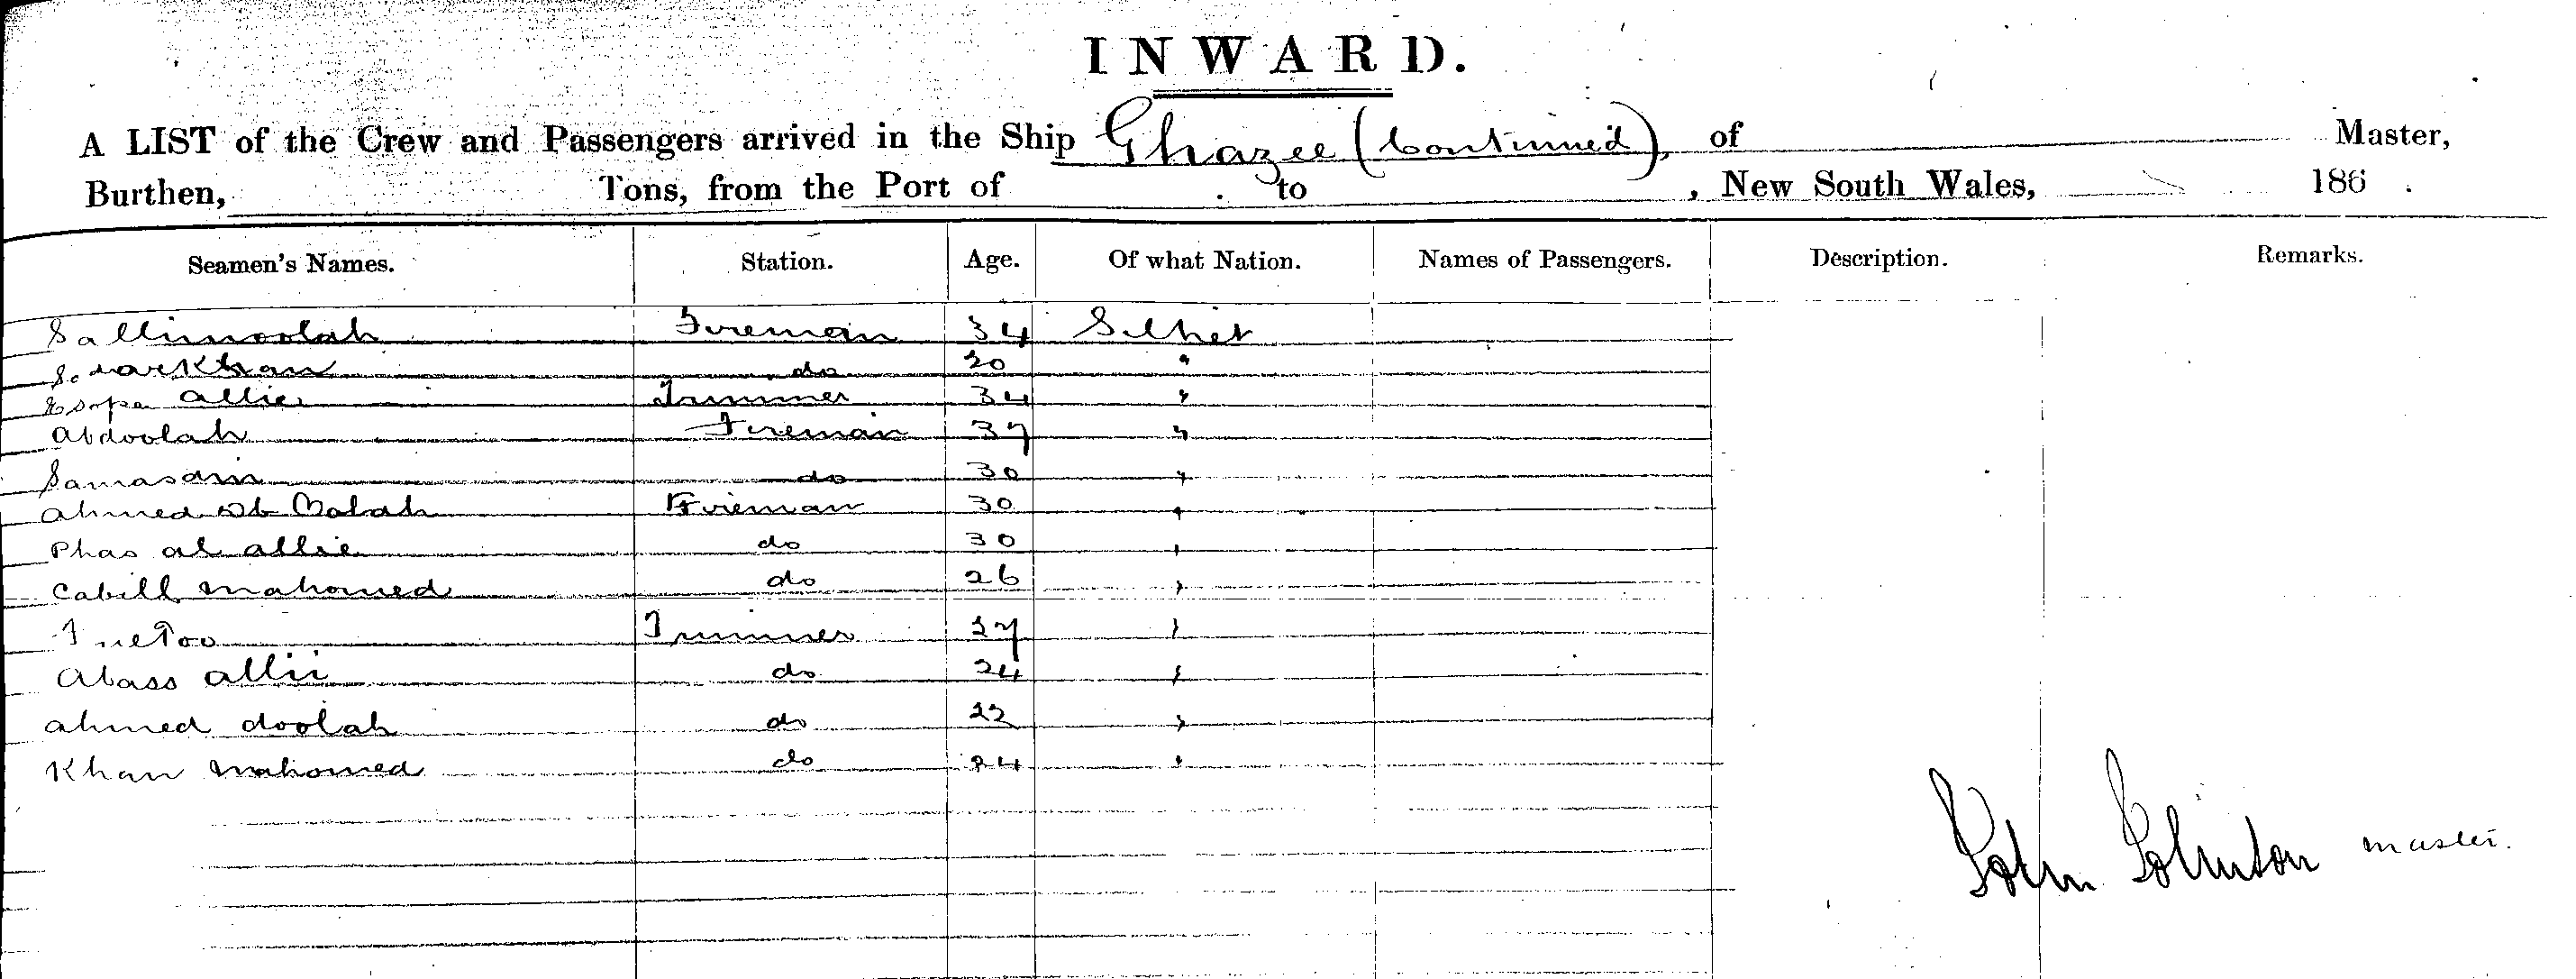 INWARD.
A LIST of the Crew and Passengers arrived in the Ship Ghazee (Continued), of Master,
Burthen, Tons, from the Port of to , New South Wales, 186 .
Seamen's Names. Station. Age. Of what Nation. Names of Passengers. Description. Remarks.
Sallimoolah Fireman 34 Silhet
Khan do 20 "
Esopa allie Trimmer 34 "
Abdoolah Fireman 37 "
Samasdin do 30 "
ahmed Fireman 30 "
Phas al allie do 30 "
Cabill mahomed do 26 "
Trimmer 27 "
Abass allii do 24 "
ahmed doolah do 22 "
Khan mahomed do 24 "
John Johnston master.